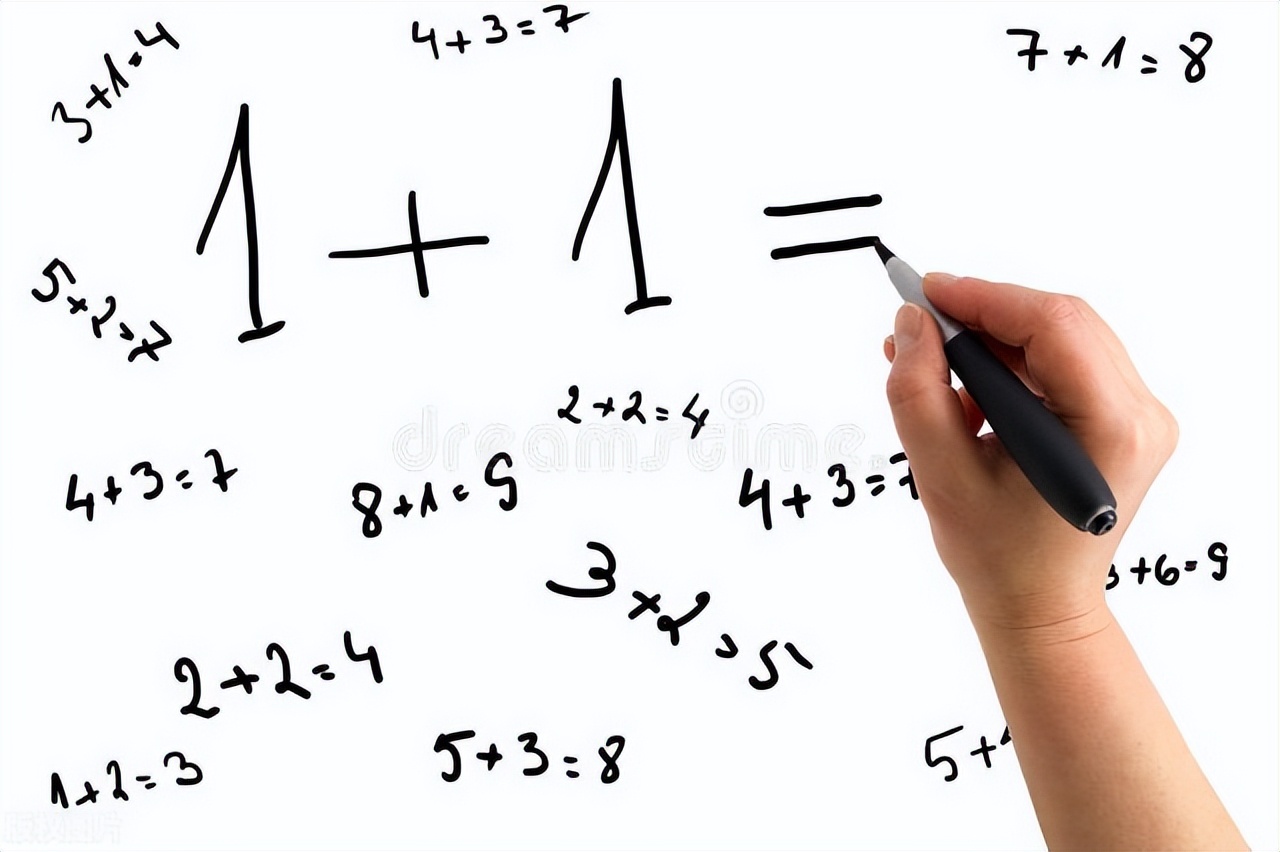 4+3=7
3+1=4
7+1=8
1+1=
5+2=7
2+2=4
dreamstime
4+3=7
8+1=9
4+3=7
3+6=9
3+2=5
2+2=4
5+3=8
1+2=3
5+